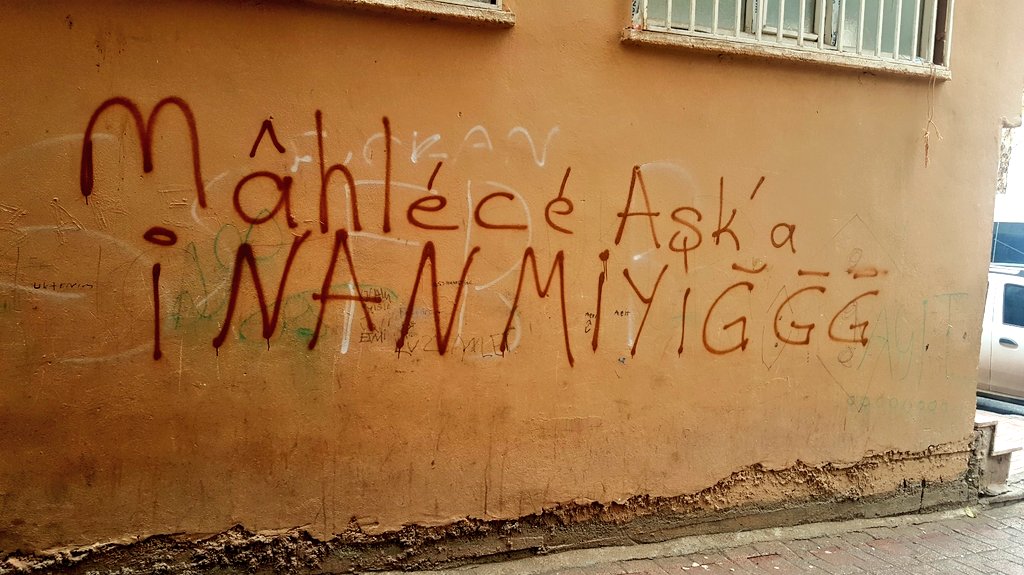 Mâhlécé Aşk'a
İNANMİYIĞĞĞ